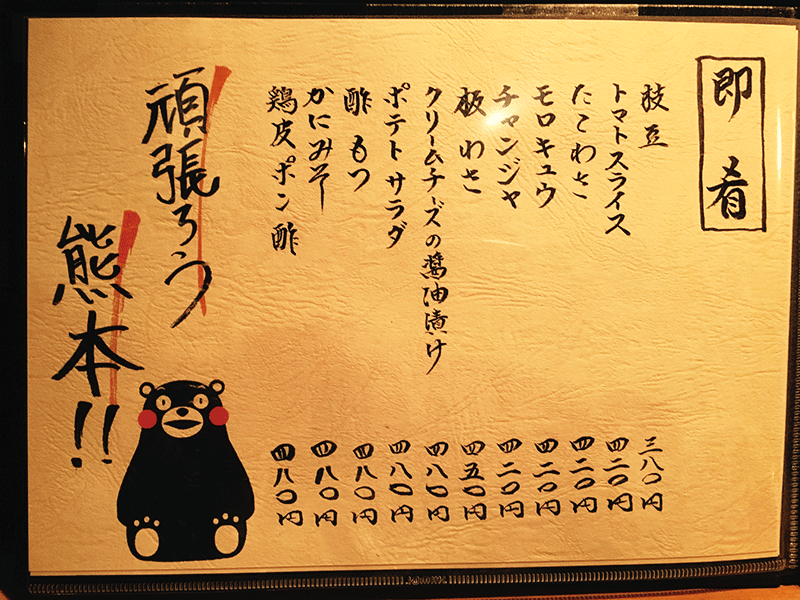 即肴
枝豆 三八〇円
トマトスライス 四二〇円
たこわさ 四二〇円
モロキュウ 四二〇円
チャンジャ 四二〇円
板わさ 四五〇円
クリームチーズの醤油漬け 四八〇円
ポテトサラダ 四八〇円
酢もつ 四八〇円
かにみそー 四八〇円
鶏皮ポン酢 四八〇円
頑張ろう
熊本!!